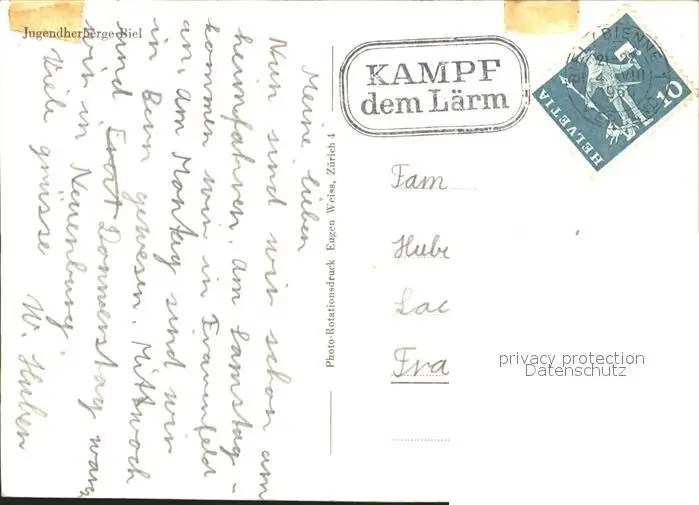 Jugendherberge Biel
Meine lieben
Nun sind wir schon am
heimfahren. Am Samstag-
kommen wir in Frauenfeld
an. Am Montag sind wir
in Bern gewesen. Mittwoch
und Donnerstag waren
wir in Neuenburg.
Viele grüsse W. Huber
Photo-Rotationsdruck Eugen Weiss, Zürich 4
KAMPF
dem Lärm
BIENNE 1
VIII
HELVETIA
10
Fam
Hube
Fra
privacy protection
Datenschutz